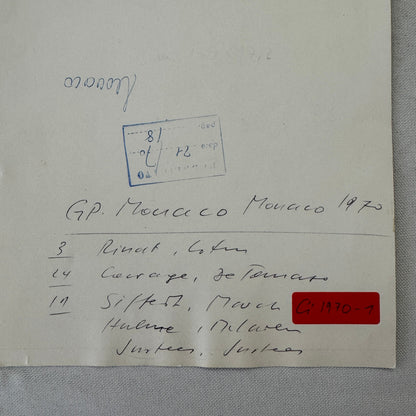 Monaco
PUBLICATO
data 21/70
pag. 18
GP. Monaco Monaco 1970
3 Rindt, Lotus
24 Courage, De Tomaso
11 Siffert, March Ci 1970-1
Hulme, McLaren
Surtees, Surtees